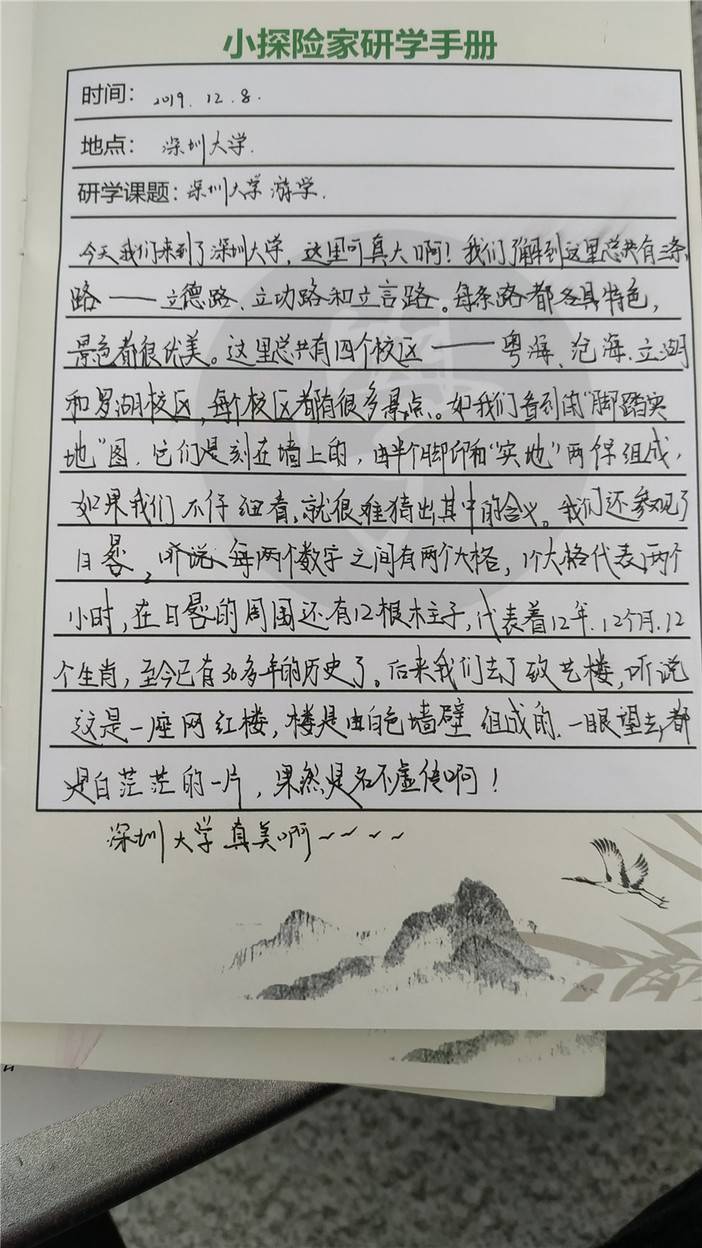 小探险家研学手册
时间: 2019.12.8.
地点: 深圳大学.
研学课题: 深圳大学游学.
今天我们来到了深圳大学,这里可真大啊!我们了解到这里总共有三条
路——立德路、立功路和立言路。每条路都各具特色,
景色都很优美。这里总共有四个校区——粤海、沧海、立湖
和罗湖校区,每个校区都有很多景点。如我们看到的"脚踏实
地"图,它们是刻在墙上的,由半个脚印和"实地"两保组成,
如果我们不仔细看,就很难猜出其中的含义。我们还参观了
日晷,听说每两个数字之间有两个大格,1个大格代表两个
小时,在日晷的周围还有12根柱子,代表着12年.12个月.12
个生肖,至今已有30多年的历史了。后来我们去了致艺楼,听说
这是一座网红楼,楼是由白色墙壁组成的.一眼望去,都
是白茫茫的一片,果然是名不虚传啊!
深圳大学真美啊~~~~